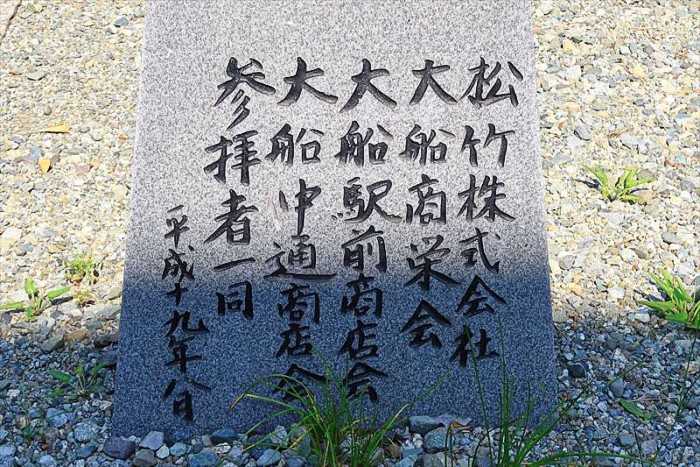 松竹株式会社
大船商栄会
大船駅前商店会
大船中通商店会
参拝者一同
平成十九年八月